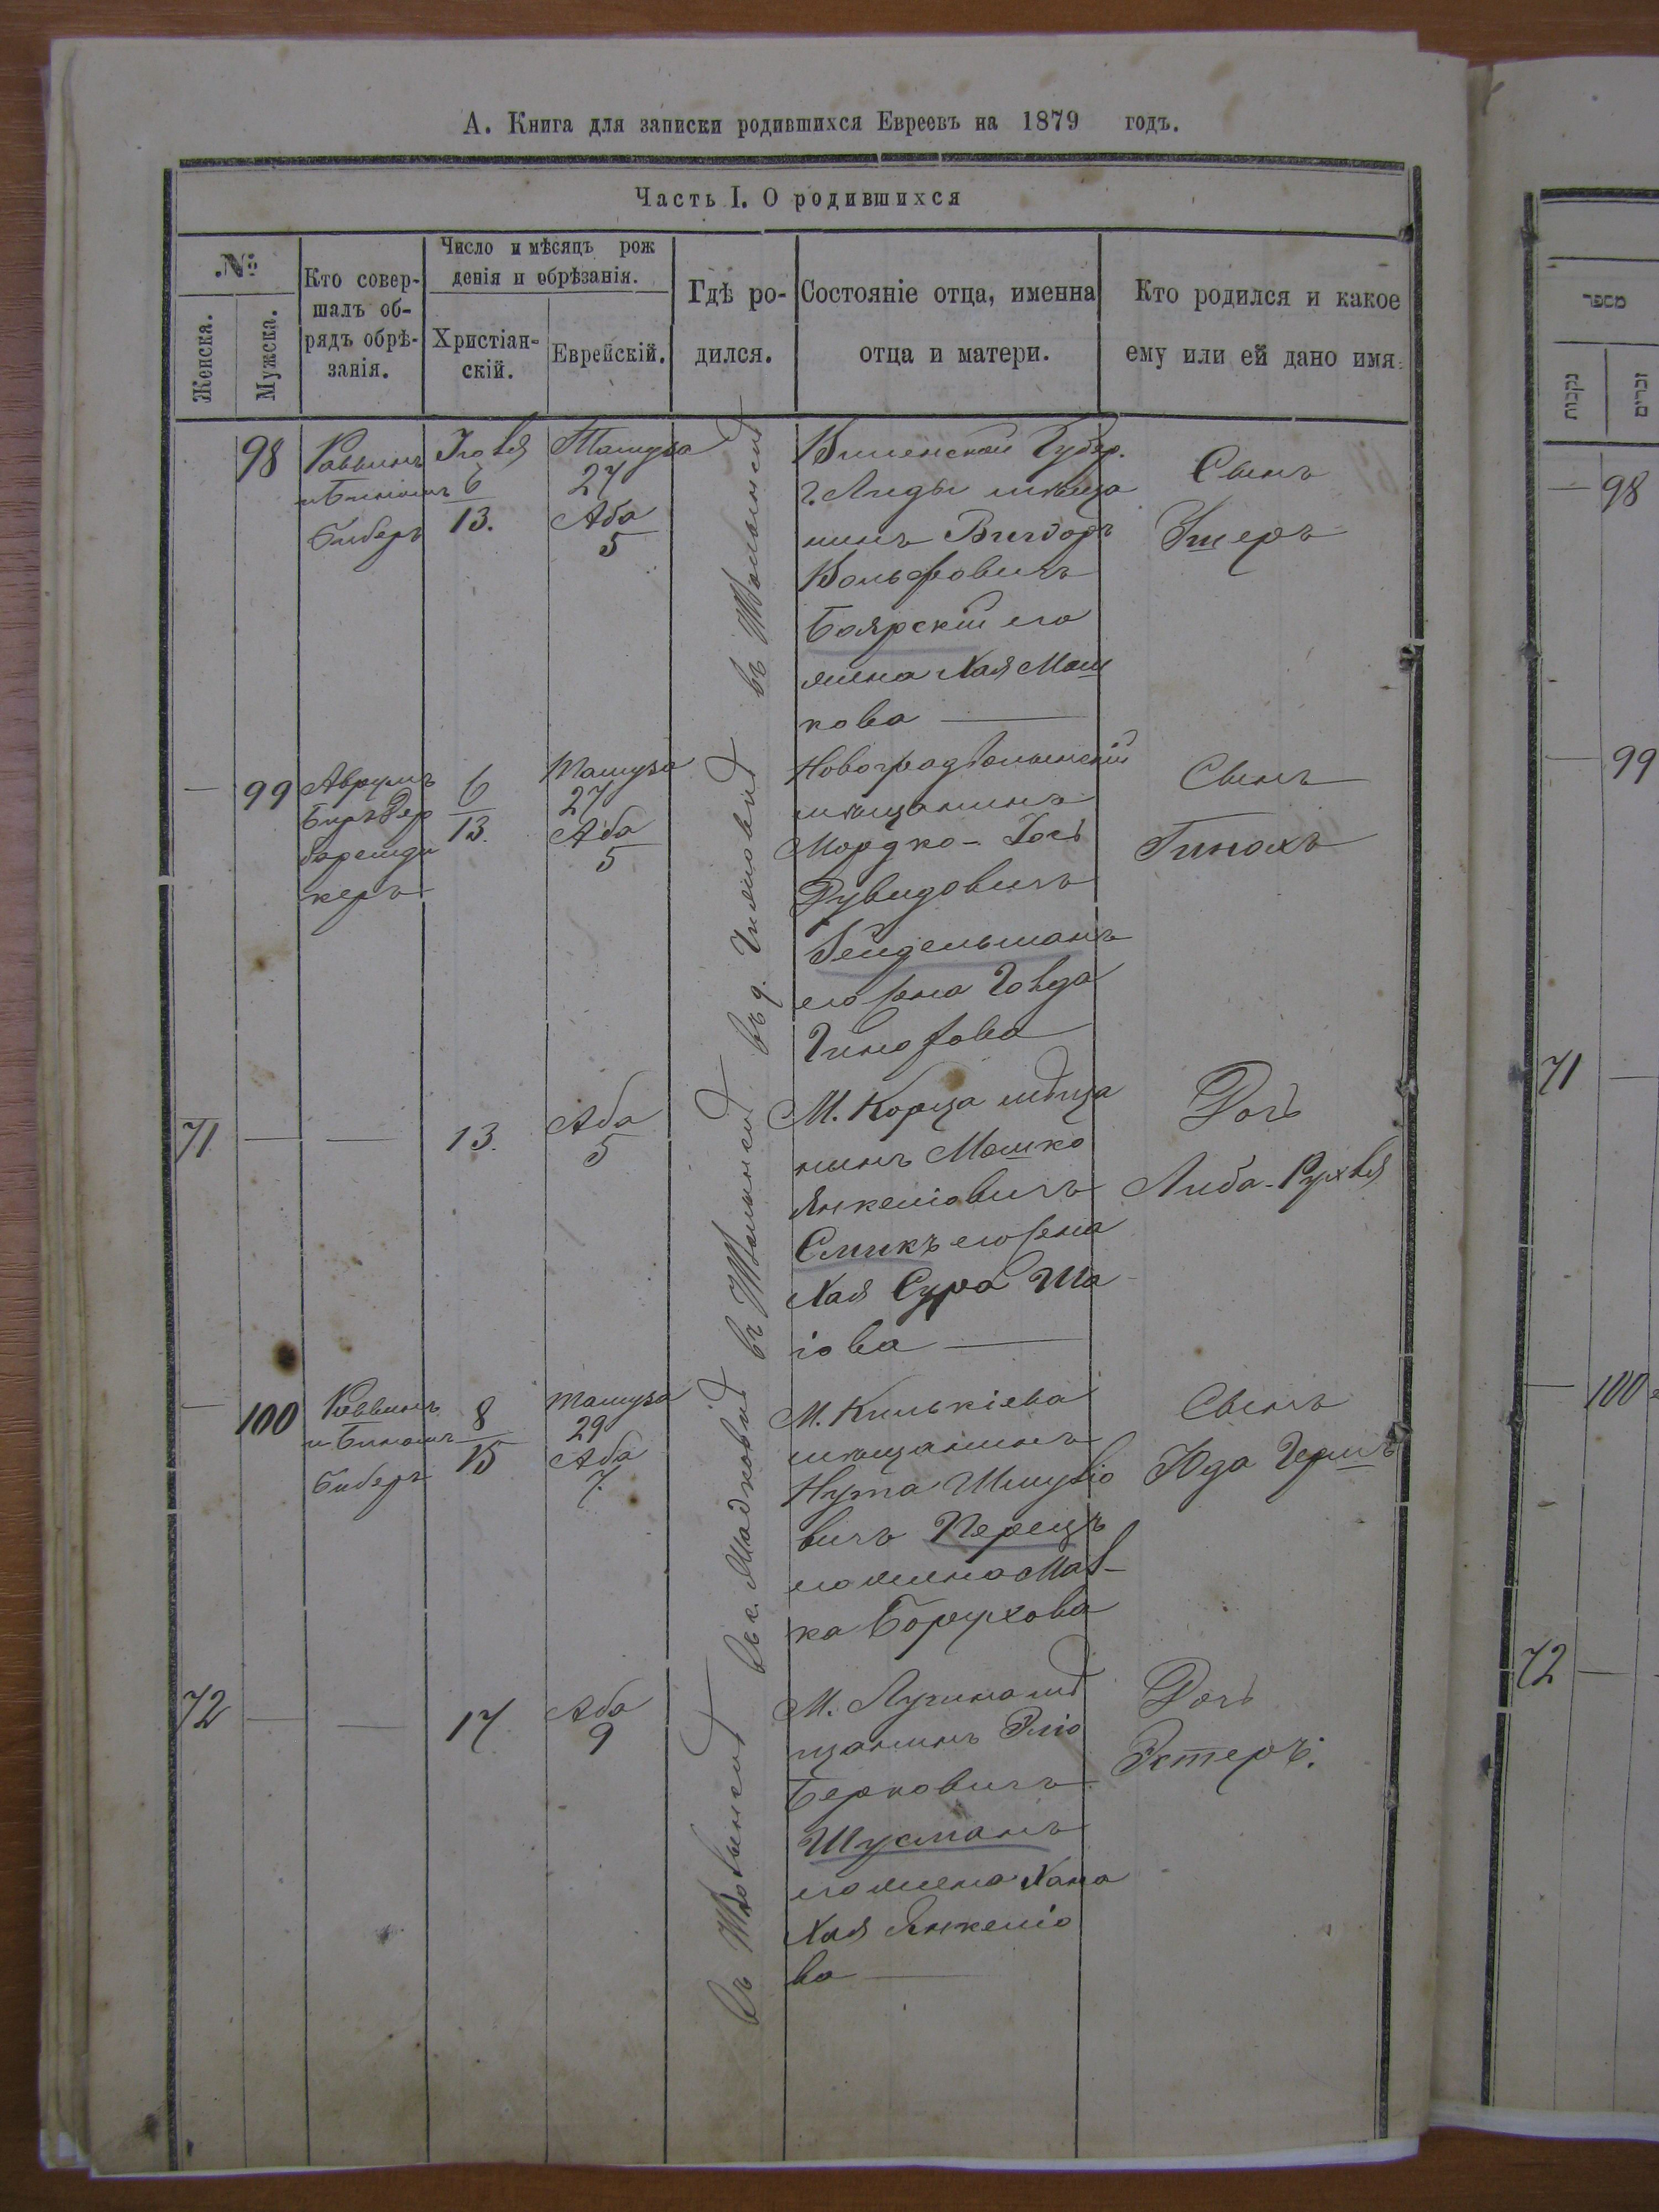 А. Книга для записки родившихся Евреевъ на 1879 годъ.
Часть I. О родившихся
№
Женска.
Мужска.
Кто совер-
шалъ об-
рядъ обрѣ-
занія.
Число и мѣсяцъ рож
денія и обрѣзанія.
Христіан-
скій.
Еврейскій.
Гдѣ ро-
дился.
Состояніе отца, именна
отца и матери.
Кто родился и какое
ему или ей дано имя.
98
Раввинъ
Биберъ
Іюля
6
13.
Тамуза
27
Аба
5
въ
Виленской Губер.
г. Лиды мѣща
нинъ Вигдоръ
Вольфовичъ
Боярскій его
жена Хая Мош
кова
Сынъ
Ушеръ
99
Аврумъ
керъ
6
13.
Тамуза
27
Аба
5
въ д.
Новоградволынскій
мѣщанинъ
Мордко-Іось
Рувидовичъ
Гендельманъ
его жена Говда
Гинохова
Сынъ
Гинохъ
71
13.
Аба
5
въ
М. Корца мѣща
нинъ Мошко
Янкеліовичъ
Сликъ его жена
Хая Сура Ша
іова
Дочь
Либа-Рухля
100
Раввинъ
Биберъ
8
15
Тамуза
29
Аба
7.
въ с.
М. Килькіева
мѣщанинъ
Нута Шмуліо
вичъ Перецъ
его жена Мал-
ка Борухова
Сынъ
Юда Гершъ
72
17
Аба
9
въ
М. Лугина мѣ
щанинъ Эліо
Берковичъ
Шусманъ
его жена Хана
Хая Янкеліо
ва
Дочь
Эстеръ.
מספר
נקבות
זכרים
98
99
71
100
72